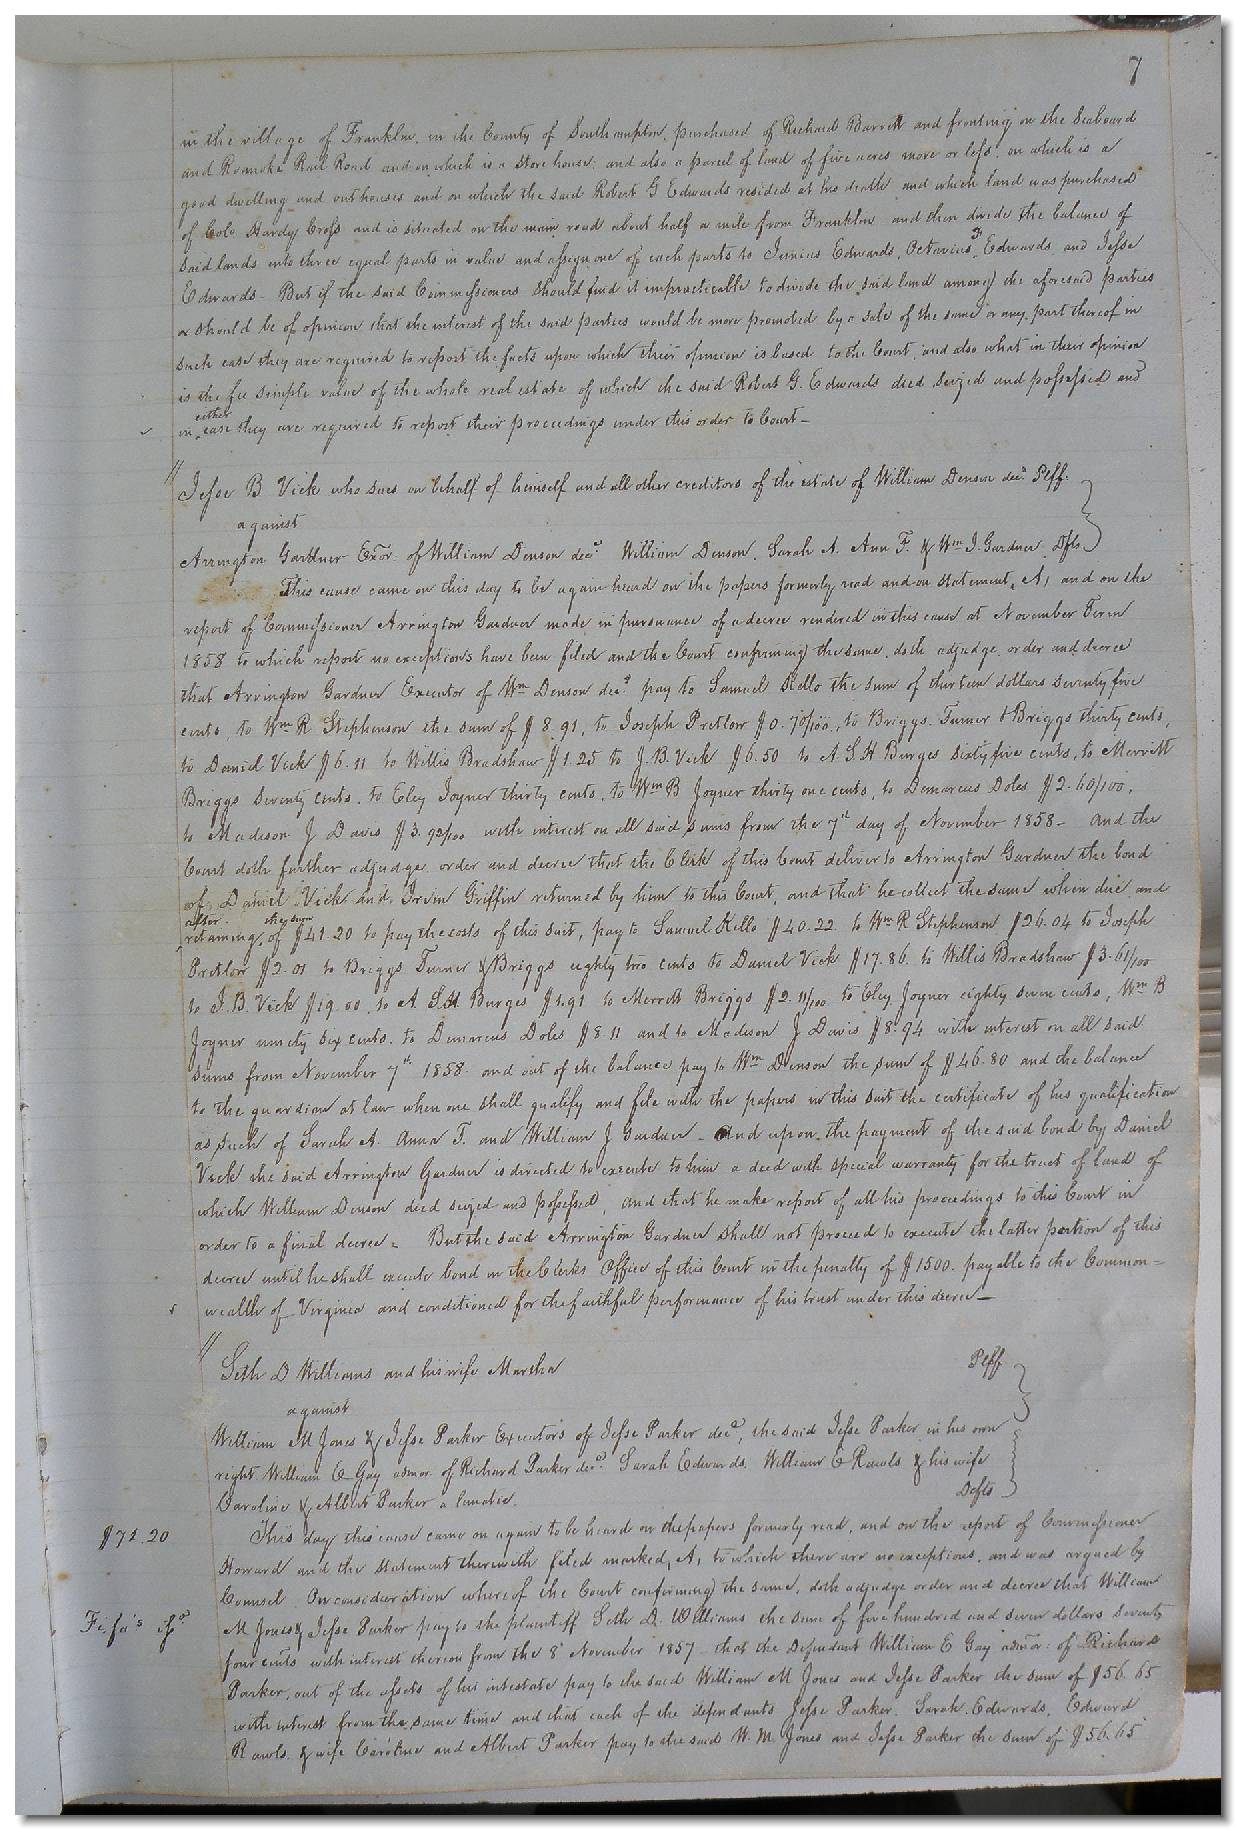 7
in the village of Franklin, in the County of Southampton, purchased of Richard Barrett and fronting on the Seaboard
and Roanoke Rail Road and on which is a store house, and also a parcel of land of five acres more or less, on which is a
good dwelling and outhouses and on which the said Robert G Edwards resided at his death and which land was purchased
of Cole Hardy Cross and is situated on the main road about half a mile from Franklin and then divide the balance of
said lands into three equal parts in value and assign one of such parts to Junius Edwards, Octavius Edwards, and Jesse
Edwards - But if the said Commissioners should find it impracticable to divide the said land among the aforesaid parties
or should be of opinion that the interest of the said parties would be more promoted by a sale of the same or any part thereof in
such case they are required to report the facts upon which their opinion is based to the Court, and also what in their opinion
is the fee simple value of the whole real estate of which the said Robert G. Edwards died seized and possessed and
in either case they are required to report their proceedings under this order to Court -
Jesse B Vick who sues on behalf of himself and all other creditors of the estate of William Denson decd. Plff.
against
Arrington Gardner Exor. of William Denson decd. William Denson, Sarah A. Ann F. & Wm J. Gardner Dfts
This cause came on this day to be again heard on the papers formerly read and on statement A, and on the
report of Commissioner Arrington Gardner made in pursuance of a decree rendered in this cause at November Term
1858 to which report no exceptions have been filed and the Court confirming the same, doth adjudge, order and decree
that Arrington Gardner Executor of Wm Denson decd pay to Samuel Kello the sum of thirteen dollars seventy five
cents, to Wm R Stephenson the sum of $8.91, to Joseph Pretlow $0.70/100, to Briggs Turner & Briggs thirty cents,
to Daniel Vick $6.11 to Willis Bradshaw $1.25 to J. B. Vick $6.50 to A. S. H Burges sixty five cents, to Merritt
Briggs seventy cents, to Eley Joyner thirty cents, to Wm B Joyner thirty one cents, to Demarcus Doles $2.60/100,
to Madison J Davis $3.92/100 with interest on all said sums from the 7th day of November 1858 - And the
Court doth further adjudge order and decree that the Clerk of this Court deliver to Arrington Gardner the bond
of Daniel Vick and Irvin Griffin returned by him to this Court, and that he collect the same when due, and
after retaining the sum of $41.20 to pay the costs of this suit, pay to Samuel Kello $40.22 to Wm R Stephenson $26.04 to Joseph
Pretlow $2.01 to Briggs Turner & Briggs eighty two cents to Daniel Vick $17.86, to Willis Bradshaw $3.61/100
to J. B. Vick $19.00, to A. S. H Burges $1.91 to Merritt Briggs $2.11/100 to Eley Joyner eighty seven cents, Wm B
Joyner ninety six cents, to Demarcus Doles $8.11 and to Madison J Davis $8.94 with interest on all said
sums from November 7th 1858 and out of the balance pay to Wm Denson the sum of $46.80 and the balance
to the guardian at law when one shall qualify and file with the papers in this suit the certificate of his qualification
as such of Sarah A. Anna F. and William J Gardner - And upon the payment of the said bond by Daniel
Vick the said Arrington Gardner is directed to execute to him a deed with special warranty for the tract of land of
which William Denson died seized and possessed, and that he make report of all his proceedings to this Court in
order to a final decree - But the said Arrington Gardner shall not proceed to execute the latter portion of this
decree until he shall execute bond in the Clerks Office of this Court in the penalty of $1500. payable to the Common=
wealth of Virginia and conditioned for the faithful performance of his trust under this decree -
Seth D Williams and his wife Martha Plff
against
William M Jones & Jesse Parker Executors of Jesse Parker decd, the said Jesse Parker in his own
right, William E Gay admor. of Richard Parker decd. Sarah Edwards, William E Rawls & his wife
Caroline & Albert Parker a lunatic. Defts
$71.20
This day this cause came on again to be heard on the papers formerly read, and on the report of Commissioner
Howard and the statement therewith filed marked A, to which there are no exceptions, and was argued by
Counsel On consideration whereof the Court confirming the same, doth adjudge order and decree that William
Fi. fa's
M Jones & Jesse Parker pay to the plaintiff Seth D. Williams the sum of five hundred and seven dollars seventy
four cents with interest thereon from the 8 November 1857 - that the defendant William E Gay admor: of Richard
Parker, out of the assets of his intestate pay to the said William M Jones and Jesse Parker the sum of $56.65
with interest from the same time and that each of the defendants Jesse Parker, Sarah Edwards, Edward
Rawls & wife Caroline and Albert Parker pay to the said W. M. Jones and Jesse Parker the sum of $56.65